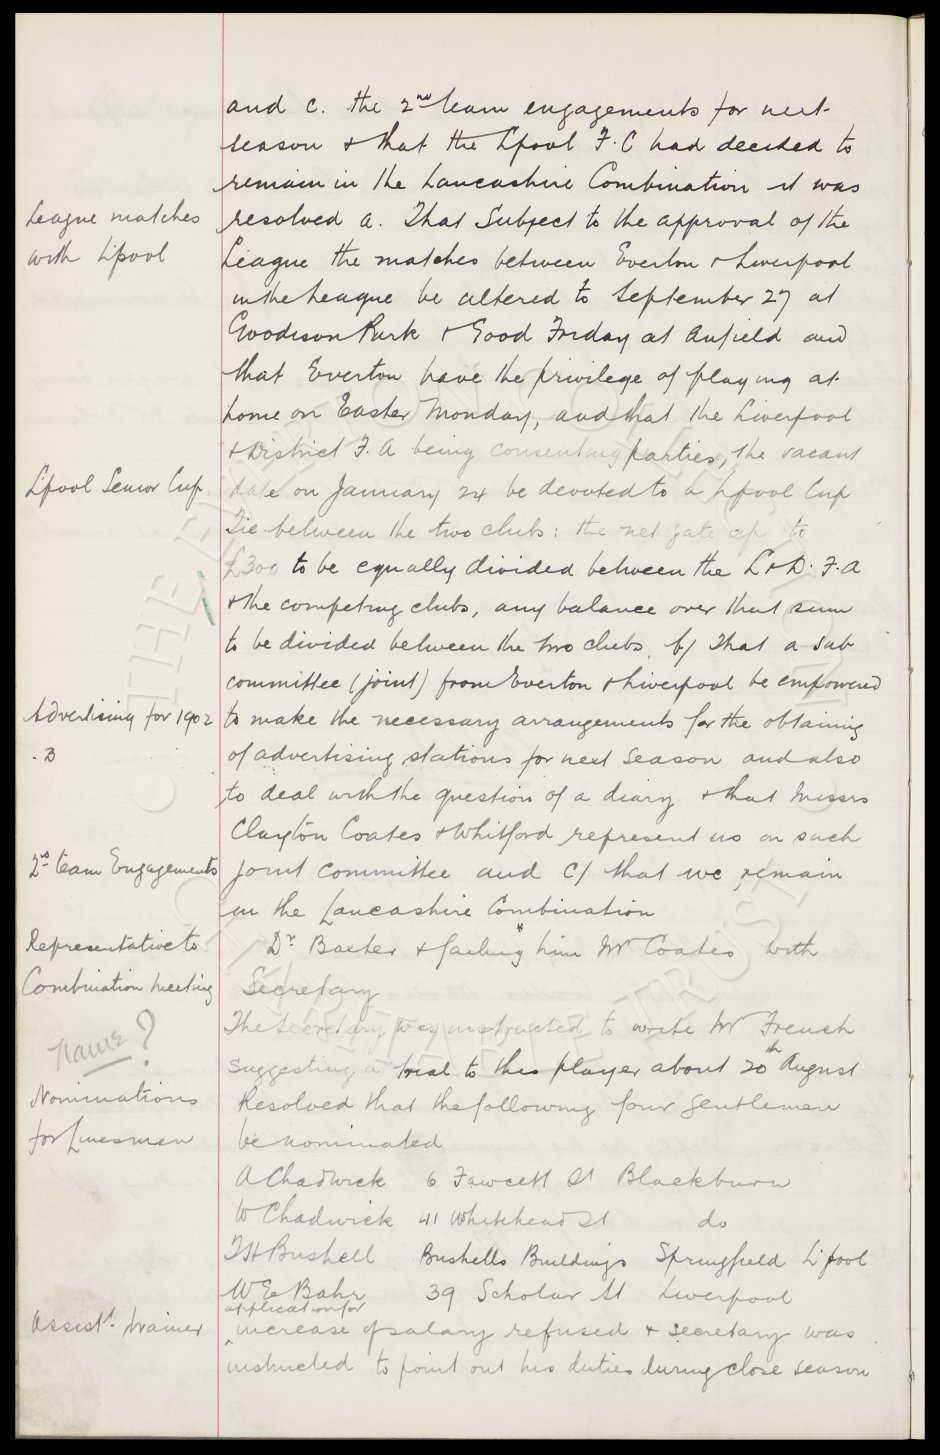 and c. the 2nd team engagements for next
season & that the L'pool F.C had decided to
remain in the Lancashire Combination it was
League matches
with L'pool
resolved a. That Subject to the approval of the
League the matches between Everton & Liverpool
in the League be altered to September 27 at
Goodison Park & Good Friday at Anfield and
that Everton have the privilege of playing at
home on Easter Monday, and that the Liverpool
& District F.A being consenting parties, the vacant
L'pool Senior Cup
date on January 24 be devoted to a L'pool Cup
Tie between the two clubs: the net gate up to
£300 to be equally divided between the L & D. F.A
& the competing clubs, any balance over that sum
to be divided between the two clubs. b/ That a sub
committee (joint) from Everton & Liverpool be empowered
Advertising for 1902
.3
to make the necessary arrangements for the obtaining
of advertising stations for next season and also
to deal with the question of a diary & that Messrs
Clayton Coates & Whitford represent us on such
2nd team Engagements
joint committee and c/ that we remain
in the Lancashire Combination
Representative to
Combination Meeting
Dr. Baxter & failing him Mr Coates with
Secretary
The Secretary was instructed to write Mr French
Name?
suggesting a trial to this player about 20th August
Nominations
for Linesmen
Resolved that the following four gentlemen
be nominated
A Chadwick 6 Fawcett St Blackburn
W Chadwick 41 Whitehead St do
T H Bushell Bushells Buildings Springfield L'pool
W E Bahr 39 Scholar St Liverpool
Assist. trainer
application for
increase of salary refused & secretary was
instructed to point out his duties during close season
THE EVERTON COLLECTION
CHARITABLE TRUST